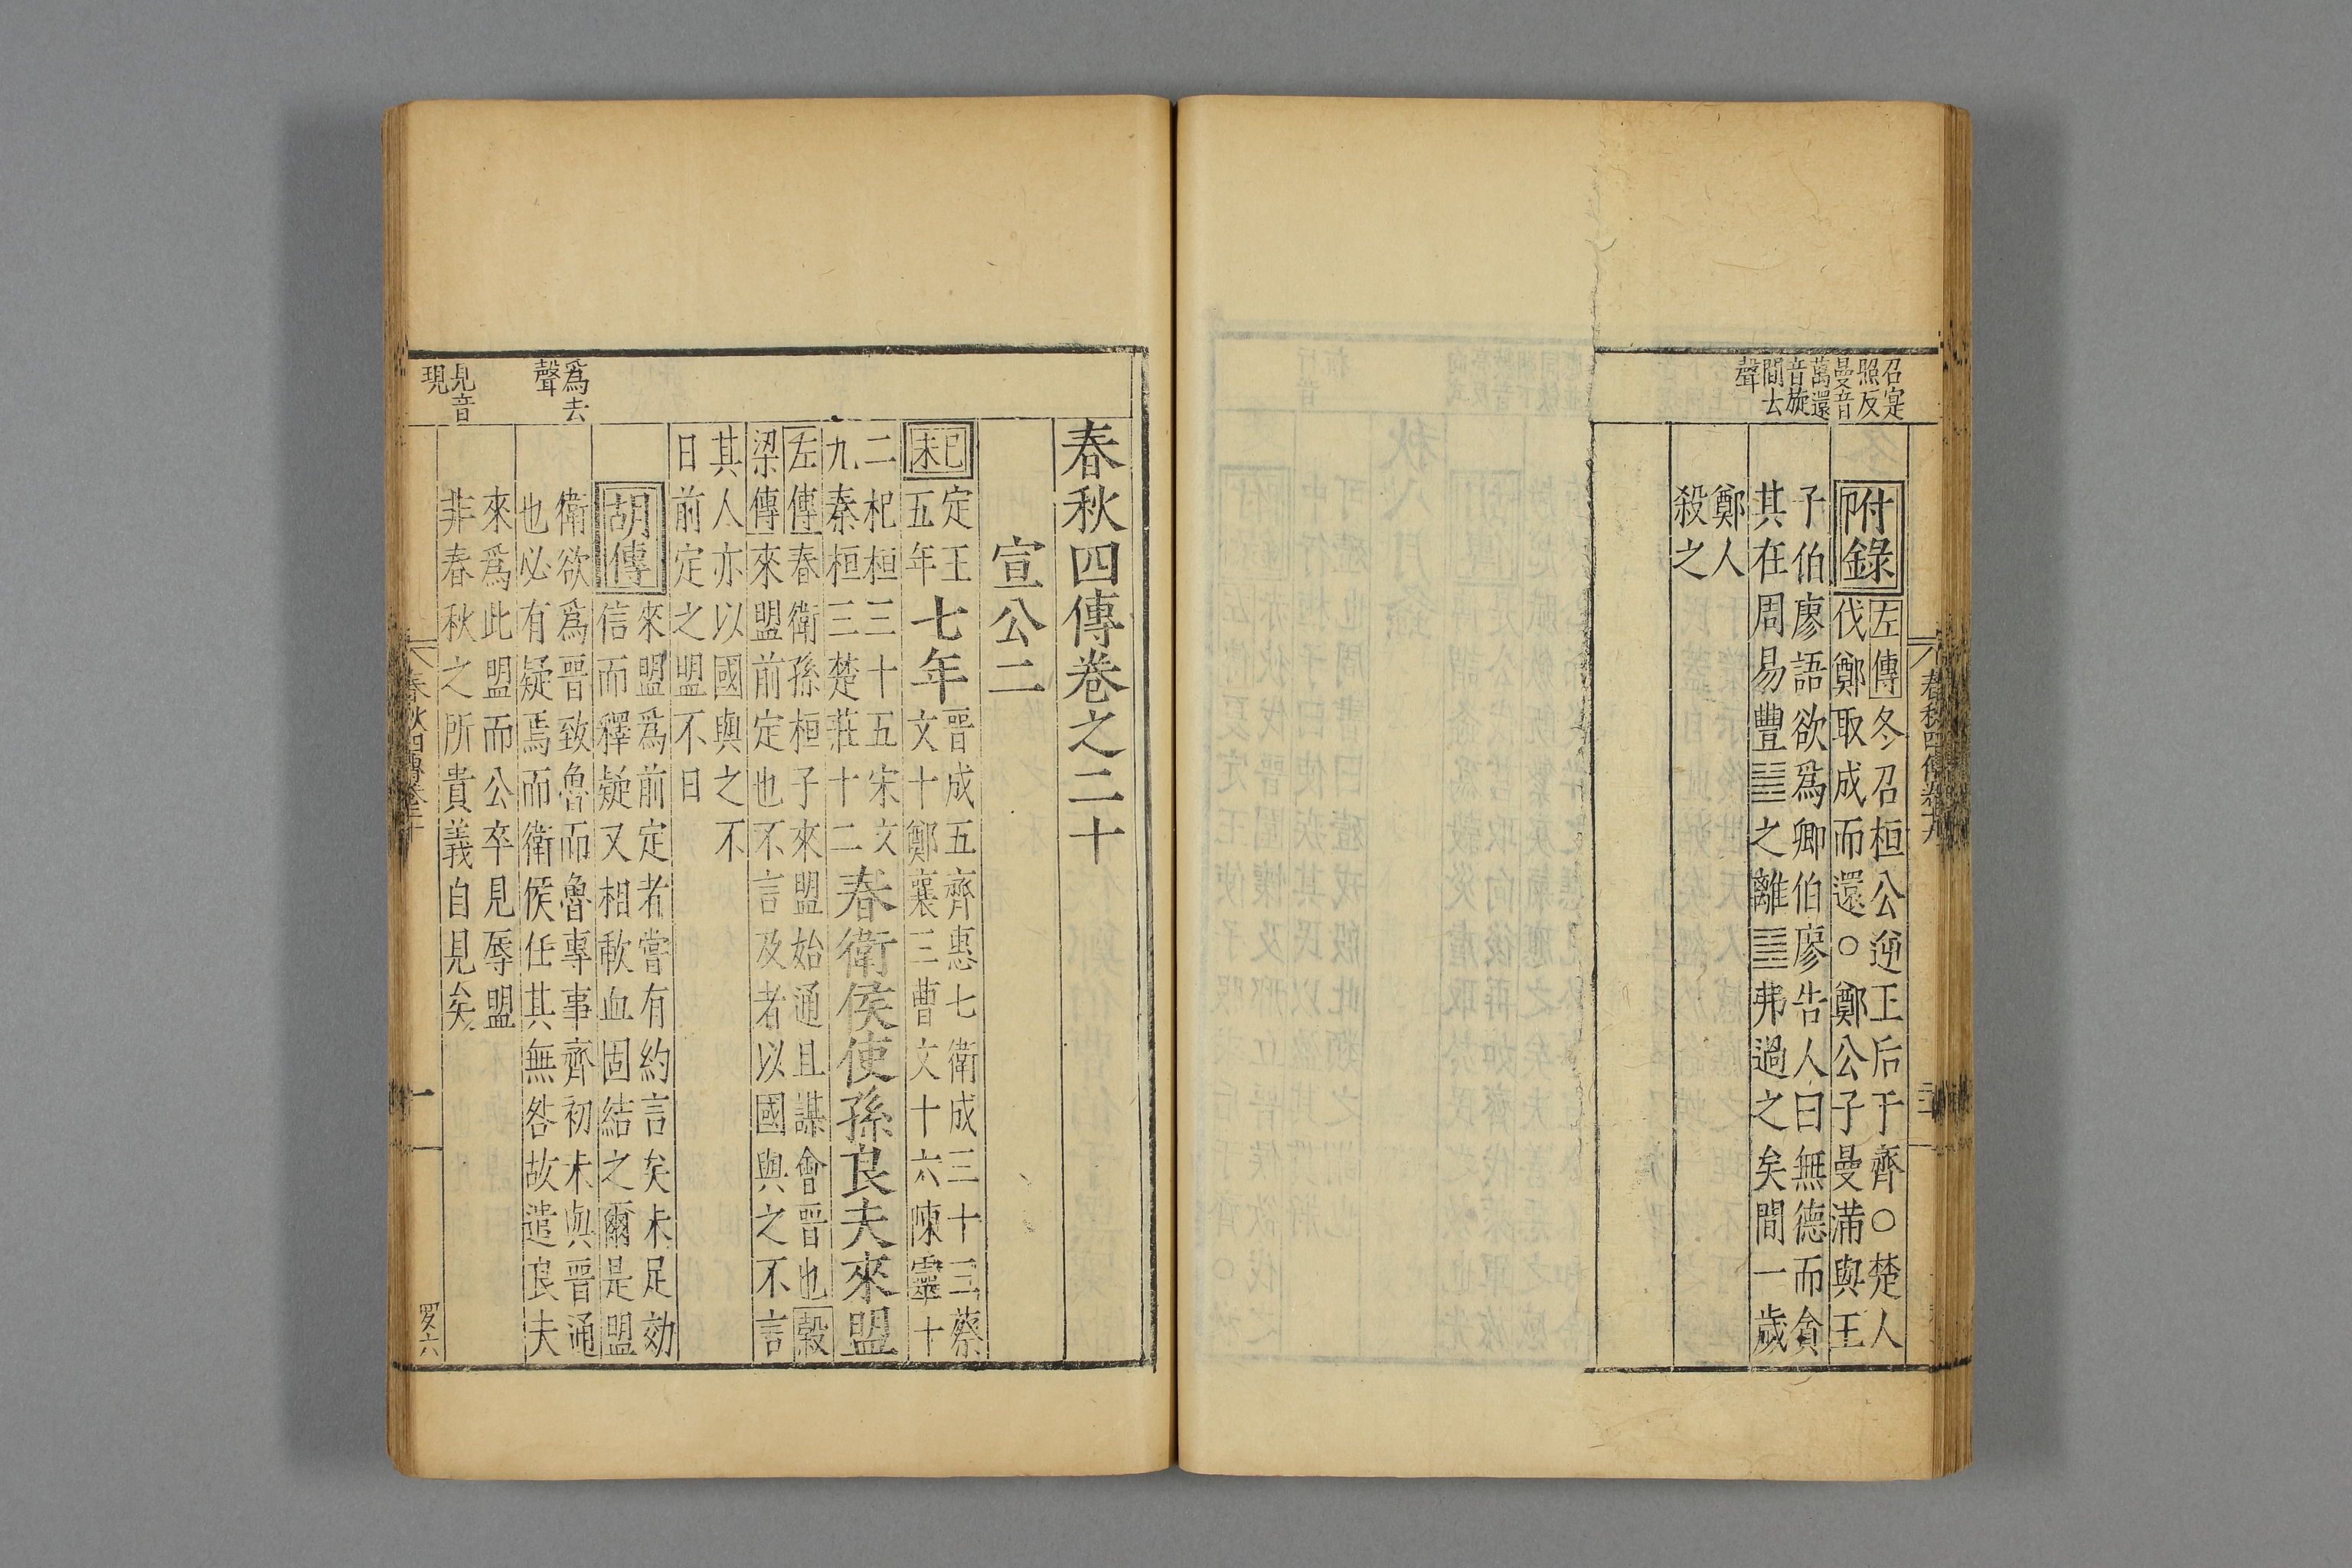 召定
照反
曼音
萬還
音旋
間去
聲
附錄
左傳冬召桓公逆王后于齊○楚人
伐鄭取成而還○鄭公子曼滿與王
子伯廖語欲爲卿伯廖告人曰無德而貪
其在周易豐䷶之離䷝弗過之矣間一歲
鄭人
殺之
春秋四傳卷之二十
宣公二
己
未
定王
五年
七年
晉成五齊惠七衛成三十三蔡
文十鄭襄三曹文十六陳靈十
二杞桓三十五宋文
九秦桓三楚莊十二
春衛侯使孫良夫來盟
左傳春衛孫桓子來盟始通且謀會晉也穀
梁傳來盟前定也不言及者以國與之不言
其人亦以國與之不
日前定之盟不日
胡傳
來盟爲前定者嘗有約言矣未足効
信而釋疑又相歃血固結之爾是盟
爲去
聲
衛欲爲晉致魯而魯專事齊初未與晉通
也必有疑焉而衛侯任其無咎故遣良夫
見音
現
來爲此盟而公卒見辱盟
非春秋之所貴義自見矣
一